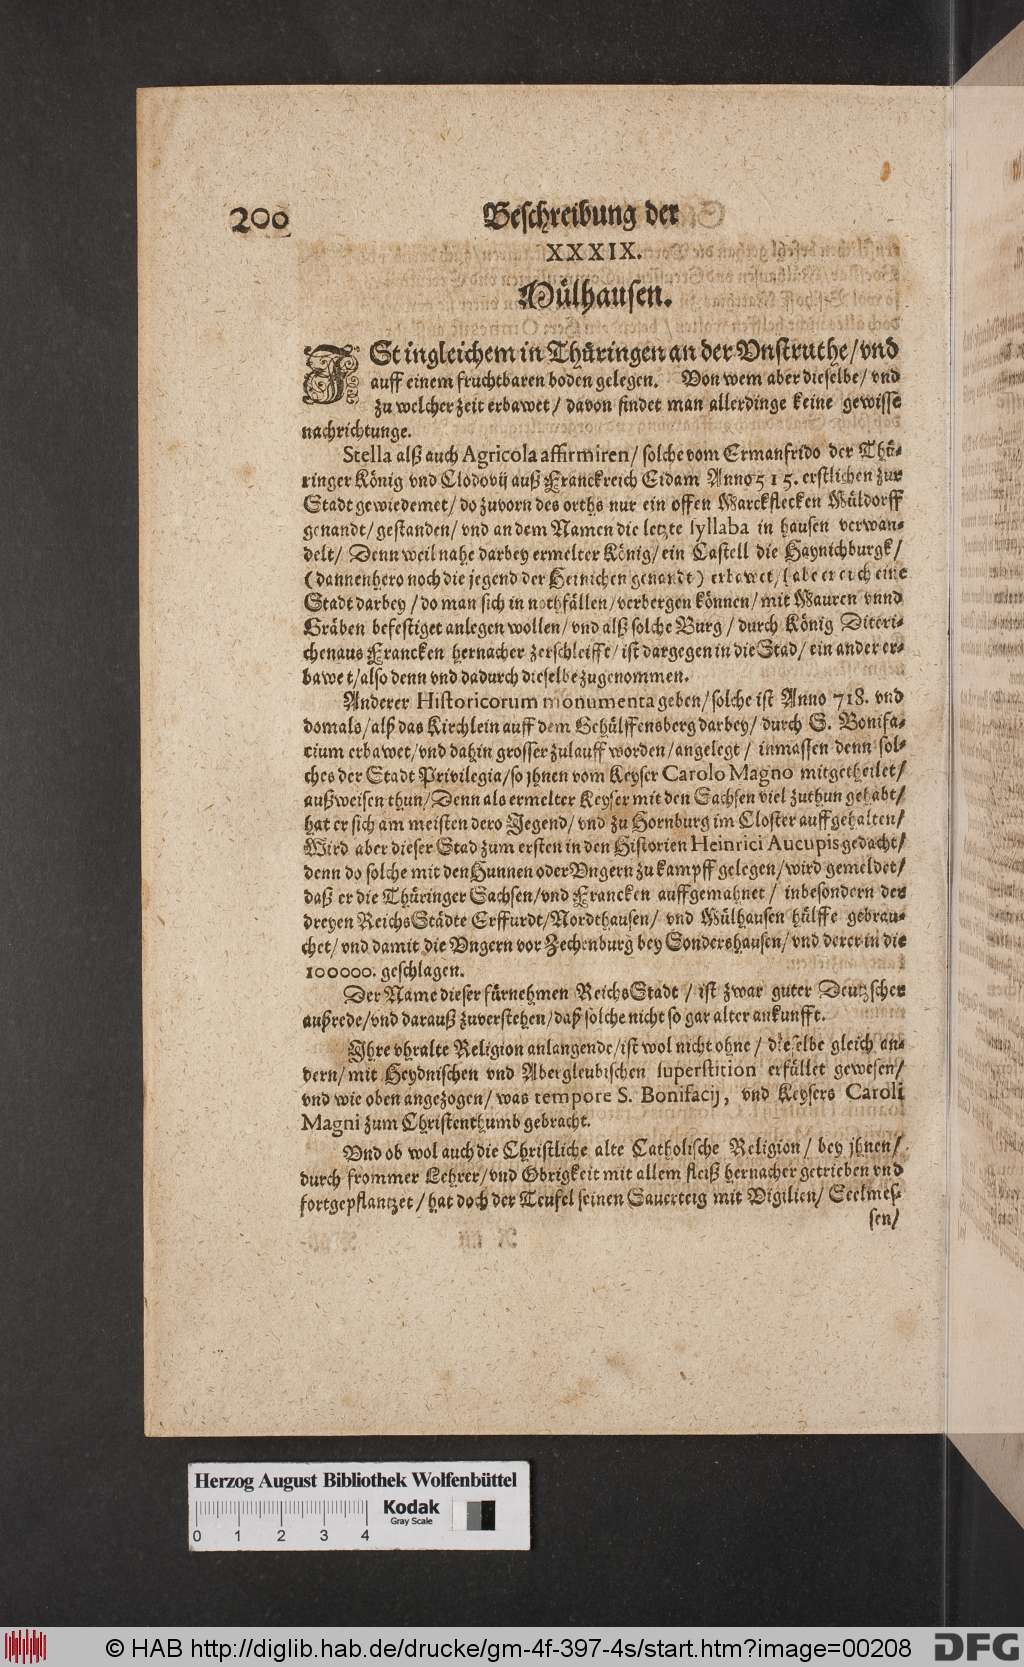 200
Beschreibung der
XXXIX.
Mülhausen.
ISt ingleichem in Thüringen an der Vnstruthe/vnd
auff einem fruchtbaren boden gelegen. Von wem aber dieselbe/ vnd
zu welcher zeit erbawet/ davon findet man allerdinge keine gewisse
nachrichtunge.
Stella alß auch Agricola affirmiren/ solche vom Ermanfrido der Thü-
ringer König vnd Clodovij auß Franckreich Eidam Anno 515. erstlichen zur
Stadt gewiedemet/ do zuvorn des orths nur ein offen Marckflecken Müldorff
genandt/ gestanden/ vnd an dem Namen die letzte syllaba in hausen verwan-
delt/ Denn weil nahe darbey ermelter König/ ein Castell die Haynichburgk/
(dannenhero noch die jegend der Heinichen genandt) erbawet/ habe er auch eine
Stadt darbey/ do man sich in nothfällen/ verbergen können/ mit Mauren vnnd
Gräben befestiget anlegen wollen/ vnd alß solche Burg/ durch König Diteri-
chen aus Francken hernacher zerschleiffe/ ist dargegen in die Stad/ ein ander er-
bawet/ also denn vnd dadurch dieselbe zugenommen.
Anderer Historicorum monumenta geben/ solche ist Anno 718. vnd
domals/ alß das Kirchlein auff dem Gehülffensberg darbey/ durch S. Bonifa-
cium erbawet/ vnd dahin grosser zulauff worden/ angelegt/ inmassen denn sol-
ches der Stadt Privilegia/ so jhnen vom Keyser Carolo Magno mitgetheilet/
außweisen thun/ Denn als ermelter Keyser mit den Sachsen viel zuthun gehabt/
hat er sich am meisten dero Jegend/ vnd zu Hornburg im Closter auffgehalten/
Wird aber dieser Stad zum ersten in den Historien Heinrici Aucupis gedacht/
denn do solche mit den Hunnen oder Vngern zu kampff gelegen/ wird gemeldet/
daß er die Thüringer Sachsen/ vnd Francken auffgemahnet/ inbesondern der
dreyen ReichsStädte Erffurdt/ Nordthausen/ vnd Mülhausen hülffe gebrau-
chet/ vnd damit die Vngern vor Zechenburg bey Sondershausen/ vnd derer in die
100000. geschlagen.
Der Name dieser fürnehmen ReichsStadt/ ist zwar guter Deutzscher
außrede/ vnd darauß zuverstehen/ daß solche nicht so gar alter ankunfft.
Ihre vhralte Religion anlangende/ ist wol nicht ohne/ dieselbe gleich an-
dern/ mit Heydnischen vnd Abergleubischen superstition erfüllet gewesen/
vnd wie oben angezogen/ was tempore S. Bonifacij, vnd Keysers Caroli
Magni zum Christenthumb gebracht.
Vnd ob wol auch die Christliche alte Catholische Religion/ bey jhnen/
durch frommer Lehrer/ vnd Obrigkeit mit allem fleiß hernacher getrieben vnd
fortgepflantzet/ hat doch der Teufel seinen Sauerteig mit Vigilien/ Seelmes-
sen/
Herzog August Bibliothek Wolfenbüttel
0 1 2 3 4
Kodak
Gray Scale
© HAB http://diglib.hab.de/drucke/gm-4f-397-4s/start.htm?image=00208
DFG